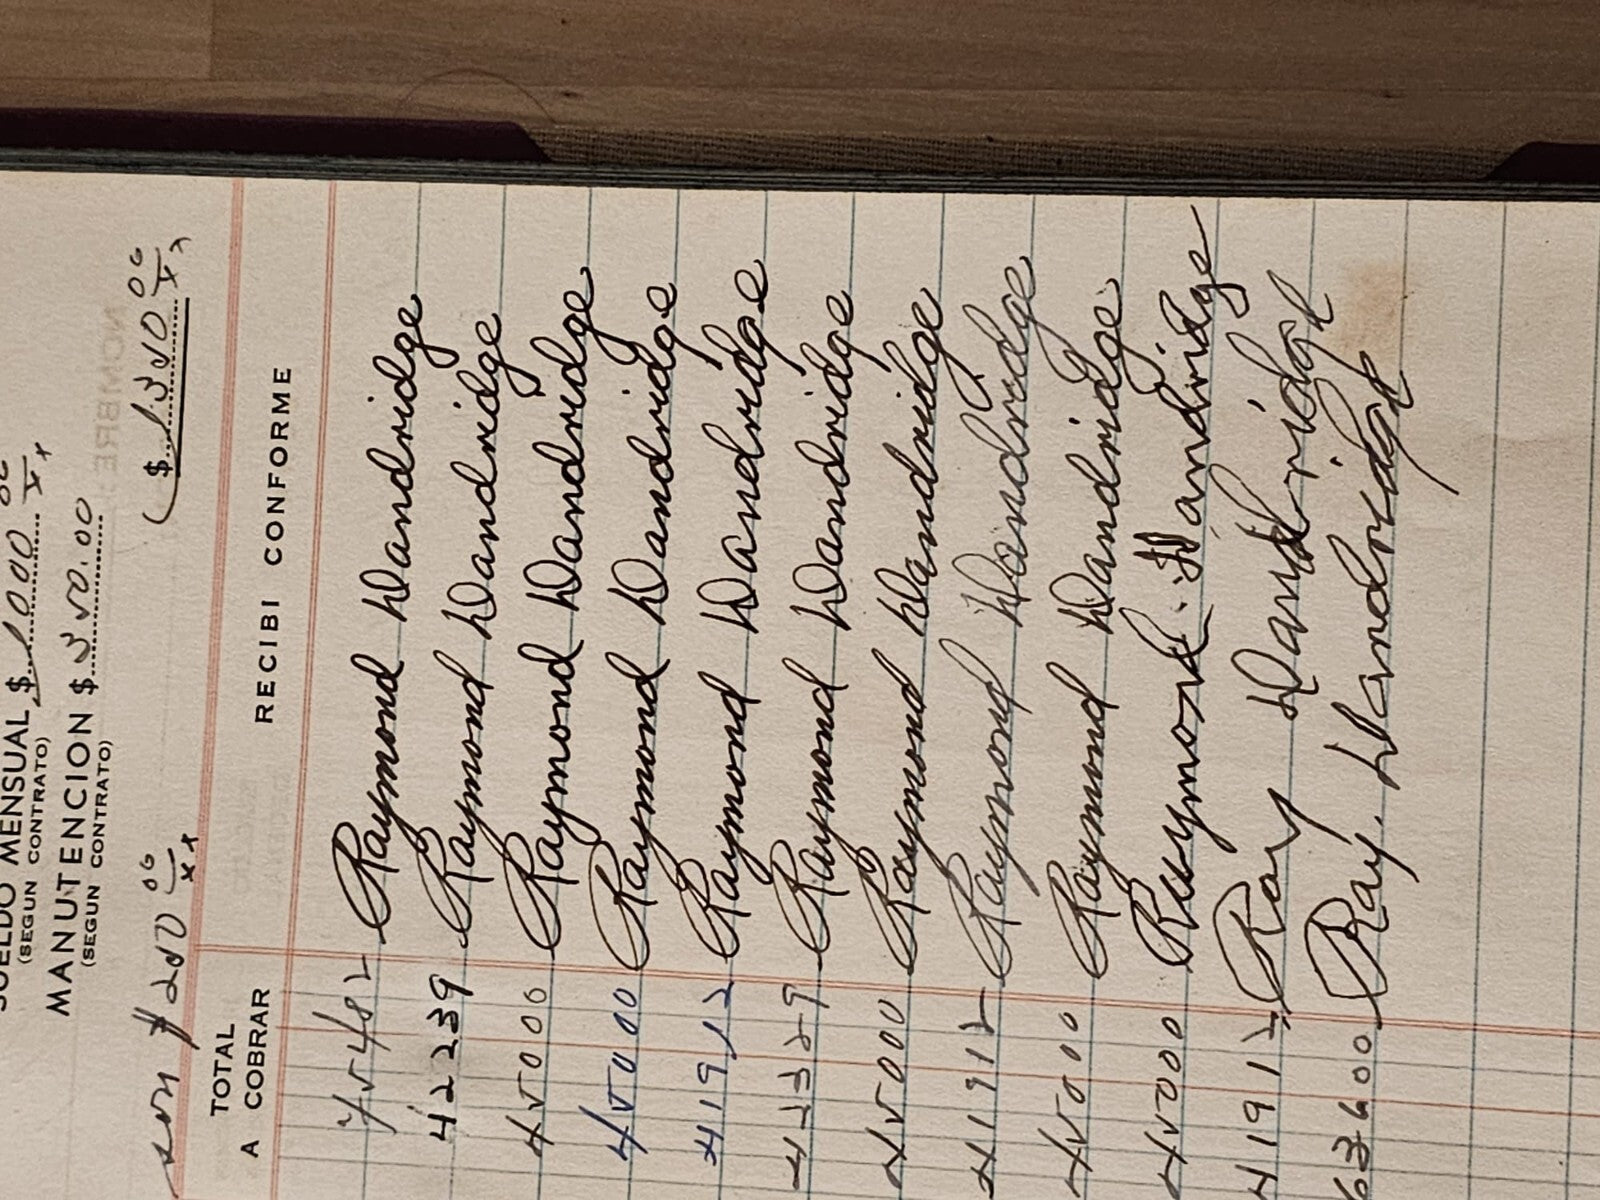 SUELDO MENSUAL $ 1000 00/xx
(SEGUN CONTRATO)
MANUTENCION $ 350.00
(SEGUN CONTRATO)
son # 200 00/xx ($ 1350 00/xx
TOTAL A COBRAR RECIBI CONFORME
45482 Raymond Dandridge
42239 Raymond Dandridge
45000 Raymond Dandridge
45000 Raymond Dandridge
41912 Raymond Dandridge
42329 Raymond Dandridge
45000 Raymond Dandridge
41912 Raymond Dandridge
45000 Raymond Dandridge
45000 Raymond Dandridge
41912 Ray Dandridge
63600 Ray Dandridge